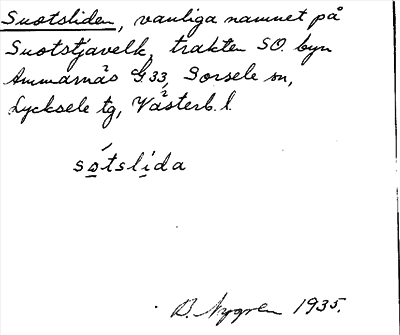 Suotsliden, vanliga namnet på
Suotstjavelk, trakten SO. byn
Ammarnäs G 33, Sorsele sn,
Lycksele tg, Västerb. l.
sotslida
B. Nygren 1935.